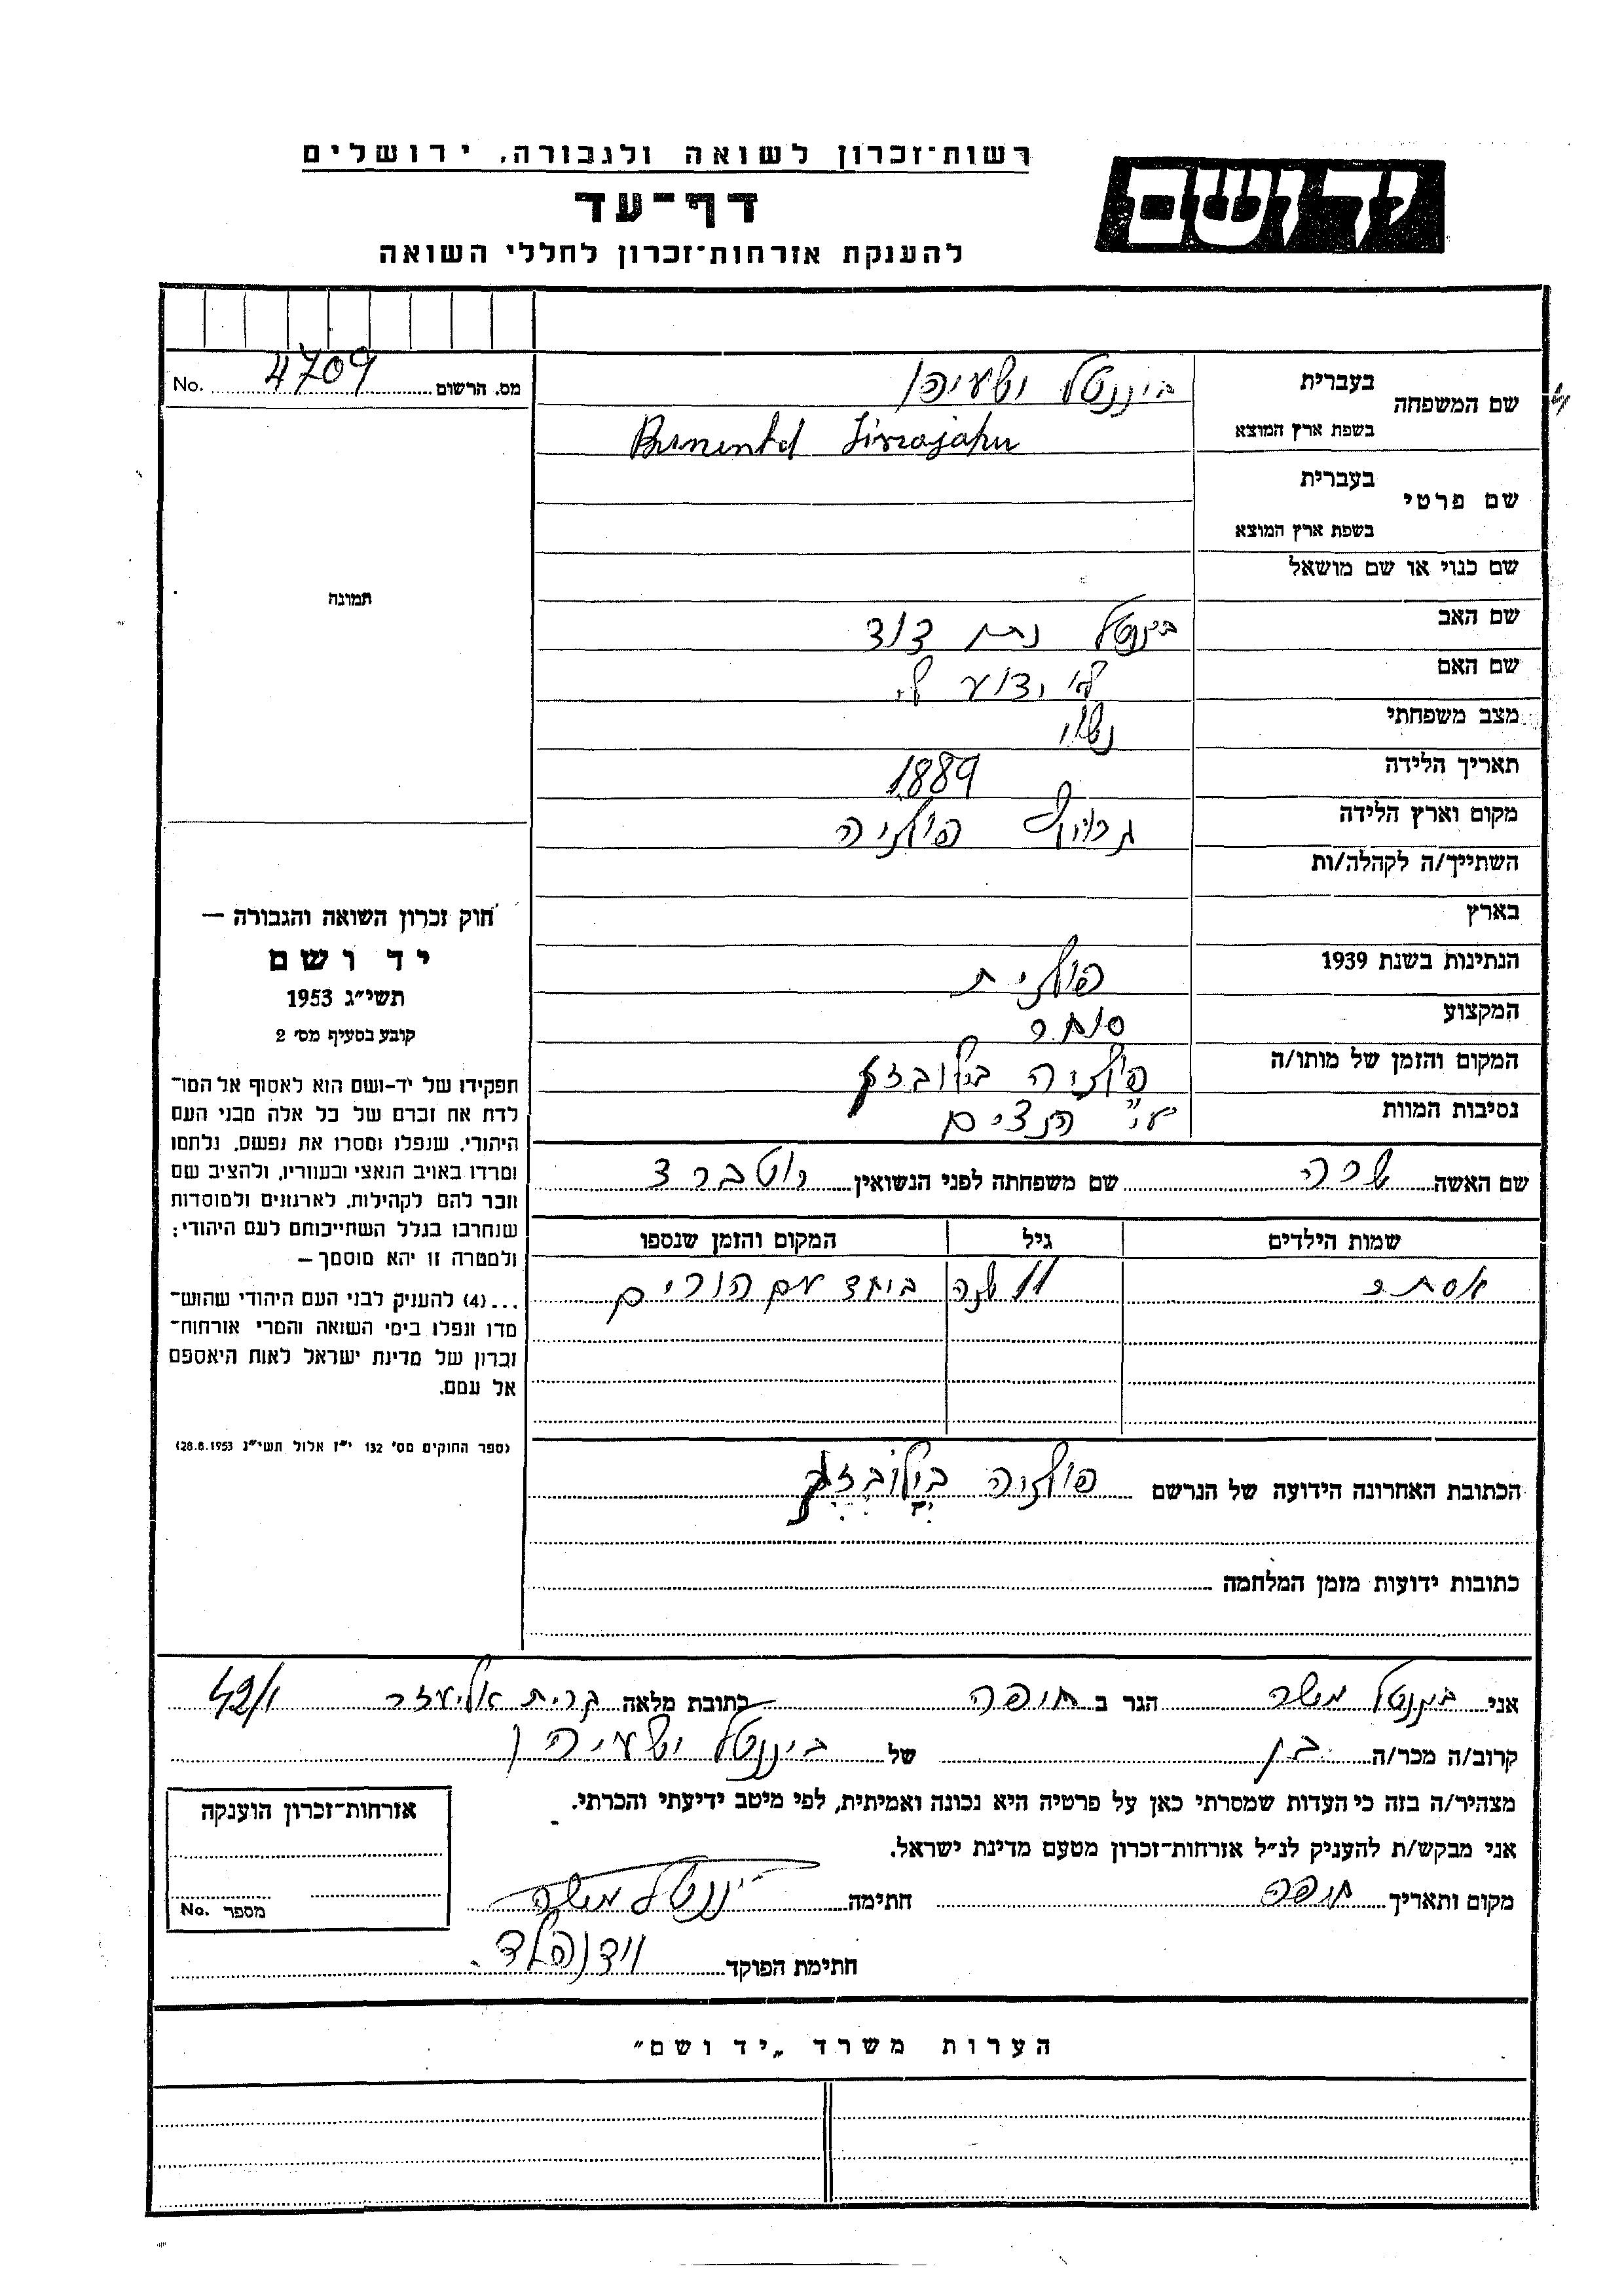 רשות־זכרון לשואה ולגבורה, ירושלים
יד ושם
דף־עד
להענקת אזרחות־זכרון לחללי השואה
מס. הרשום 4709 No.
שם המשפחה
בעברית ביננטל ישעיהו
בשפת ארץ המוצא
שם פרטי
בעברית
בשפת ארץ המוצא
שם כנוי או שם מושאל
שם האב ביננטל נתן דוד
שם האם לא ידוע לי
מצב משפחתי נשוי
תאריך הלידה 1889
מקום וארץ הלידה פולניה
השתייך/ה לקהלה/ות
בארץ
הנתינות בשנת 1939 פולנית
המקצוע סוחר
המקום והזמן של מותו/ה פולניה
נסיבות המוות ע"י הנצים
תמונה
חוק זכרון השואה והגבורה —
יד ושם
תשי״ג 1953
קובע בסעיף מס׳ 2
תפקידו של יד-ושם הוא לאסוף אל המו־
לדת את זכרם של כל אלה מבני העם
היהודי, שנפלו ומסרו את נפשם, נלחמו
ומרדו באויב הנאצי ובעוזריו, ולהציב שם
וזכר להם לקהילות, לארגונים ולמוסדות
שנחרבו בגלל השתייכותם לעם היהודי;
ולמטרה זו יהא מוסמך —
...(4) להענין לבני העם היהודי שהוש־
מדו ונפלו בימי השואה והמרי אזרחות־
זכרון של מדינת ישראל לאות היאספם
אל עמם.
(ספר החוקים מס׳ 132 י״ז אלול תשי״ג 28.8.1953)
שם האשה שרה שם משפחתה לפני הנשואין
שמות הילדים גיל המקום והזמן שנספו
אסתר 11 שנה ביחד עם הורים
הכתובת האחרונה הידועה של הנרשם פולניה
כתובות ידועות מזמן המלחמה
אני ביננטל משה הגר ב חיפה כתובת מלאה קרית אליעזר 42/1
קרוב/ה מכר/ה בן של ביננטל ישעיהו
מצהיר/ה בזה כי העדות שמסרתי כאן על פרטיה היא נכונה ואמיתית, לפי מיטב ידיעתי והכרתי.
אני מבקש/ת להעניק לנ״ל אזרחות־זכרון מטעם מדינת ישראל.
מקום ותאריך חיפה חתימה ביננטל משה
חתימת הפוקד
אזרחות־זכרון הוענקה
מספר No.
הערות משרד „יד ושם״